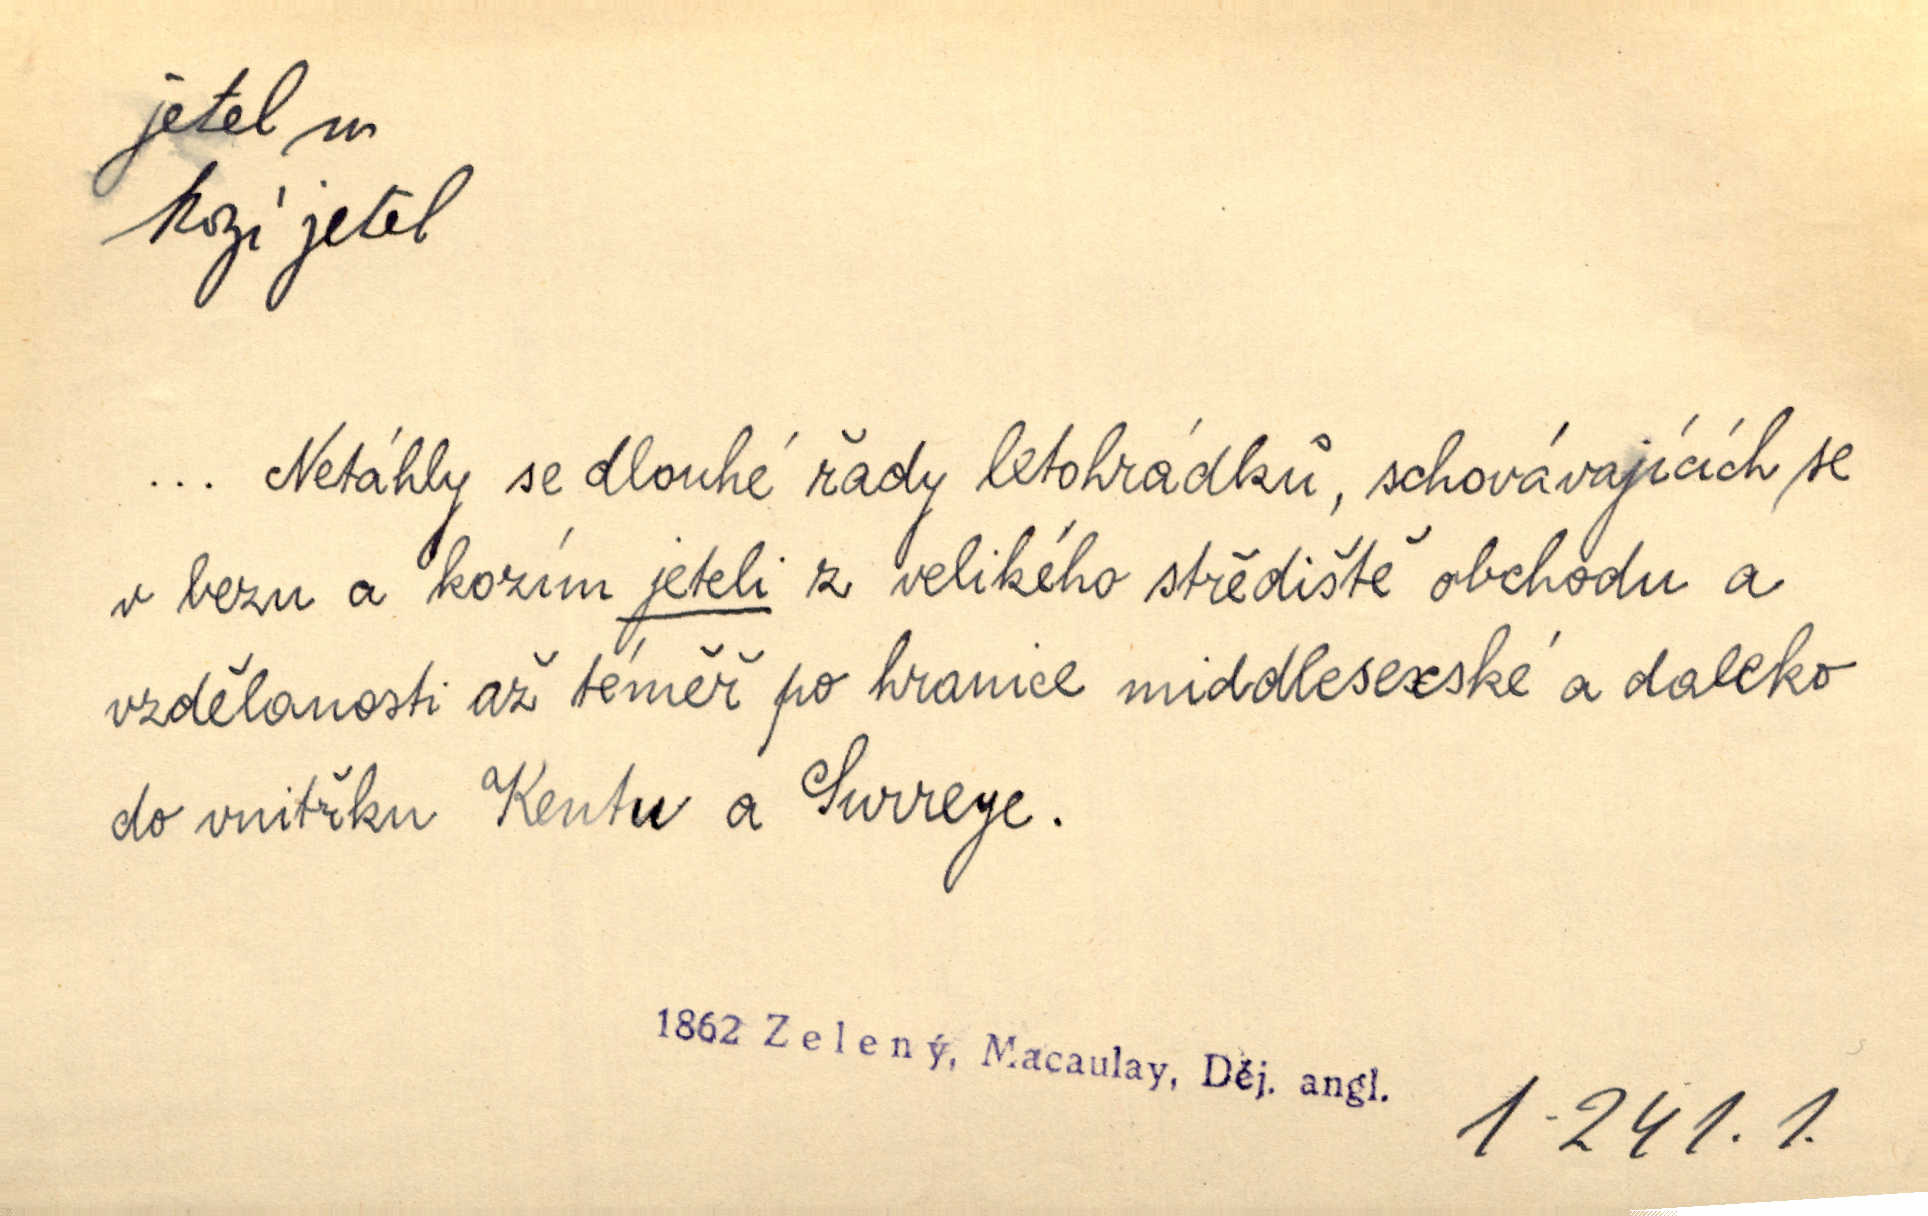 jetel m
kozí jetel
... Netáhly se dlouhé řady letohrádků, schovávajících se
v bezu a kozím jeteli z velikého střediště obchodu a
vzdělanosti až téměř po hranice middlesexské a daleko
do vnitřku Kentu a Surreye.
1862 Zelený, Macaulay, Děj. angl.
1-241.1.